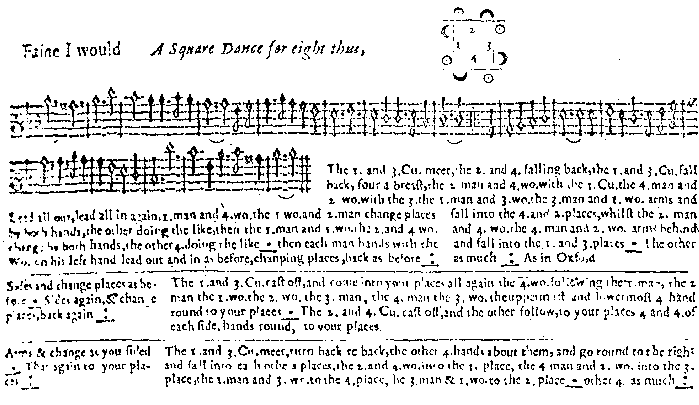 Faine I would A Square Dance for eight thus,
2
1 3
4
The 1. and 3. Cu. meet, the 2. and 4. falling back, the 1. and 3. Cu. fall
back, four a breast, the 2 man and 4. wo. with the 1. Cu. the 4. man and
2 wo. with the 3. the 1. man and 3. wo. the 3. man and 1. wo. arms and
fall into the 4. and 2. places, whilst the 2. man
4. wo. the 4. man and 2. wo. arms behind
and fall into the 1. and 3. places the other
as much As in Oxford
Lead all out, lead all in again, 1. man and 4. wo. the 1 wo. and 2. man change places
by both hands, the other doing the like, then the 1. man and 1. wo. the 2. and 4 wo.
change by both hands, the other 4. doing the like then each man hands with the
Wo. on his left hand lead out and in as before, changing places, back as before
Sides and change places as be-
fore Sides again, & change
places, back again
The 1. and 3. Cu. cast off, and come into your places all again the 4. wo. following the 1. man, the 2
man the 1. wo. the 2. wo. the 3. man, the 4. man the 3. wo. the uppermost and lowermost 4 hand
round to your places The 2. and 4. Cu. cast off, and the other follow, to your places 4 and 4. of
each side, hands round, to your places.
Arms & change as you sided
That again to your pla-
ces
The 1. and 3. Cu. meet, turn back to back, the other 4. hands about them, and go round to the right
and fall into each others places, the 2. and 4. wo. into the 1. place, the 4 man and 2. wo. into the 3.
place, the 1. man and 3. wo. to the 4. place, he 3. man & 1, wo. to the 2, place other 4. as much